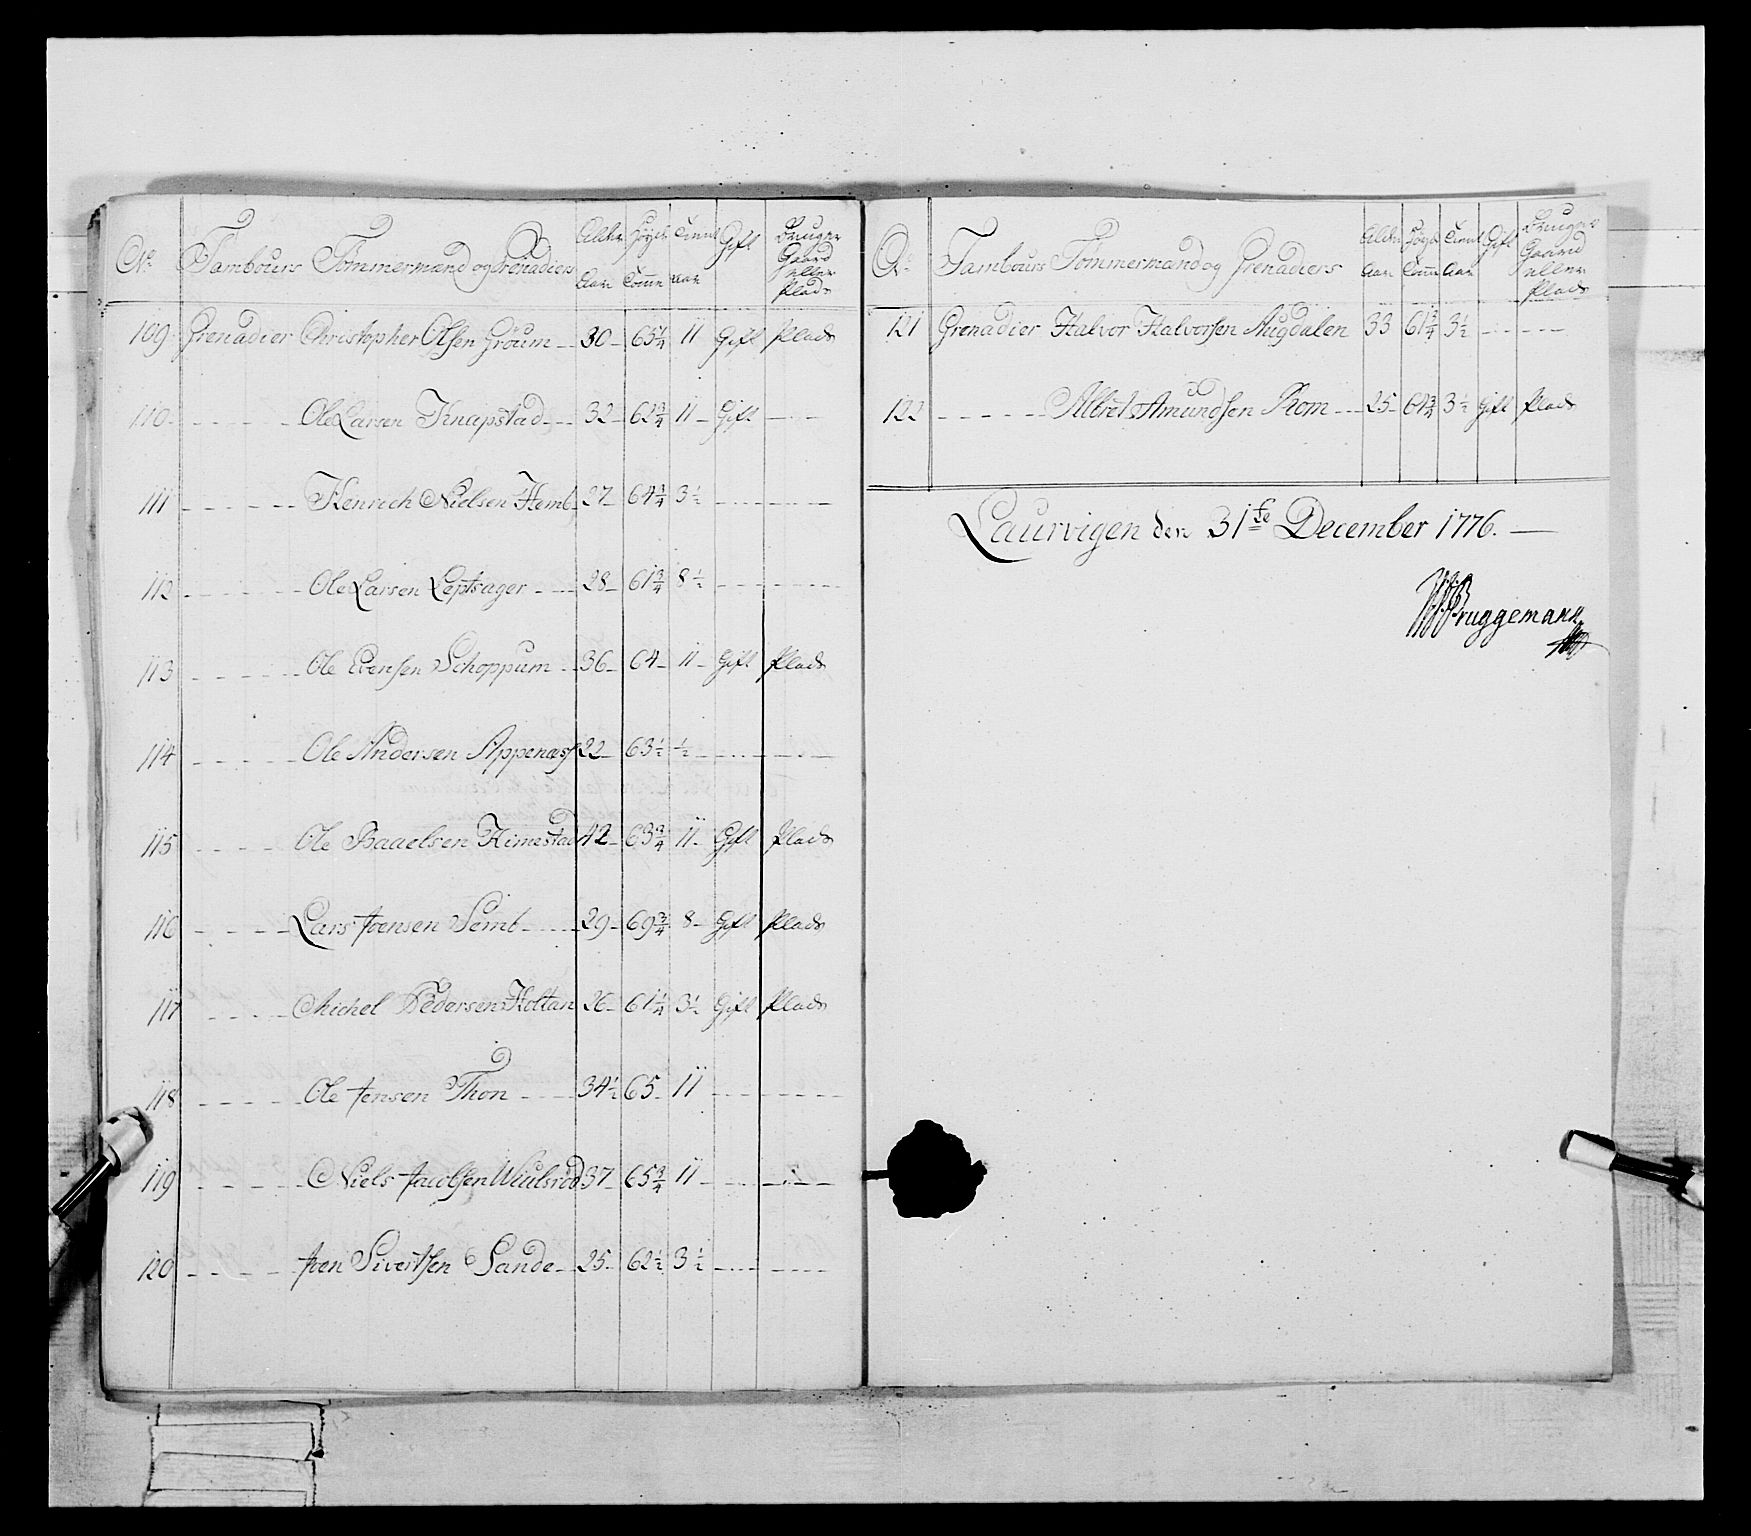 No. Tambours Tømmermænd og Grenadiers Alder Aar Høyde Tomme Tient Aar Gift Bruger Gaard eller Plads
109 Grenadier Christopher Olsen Gröum 30 65 1/4 11 Gift Plads
110 Ole Larsen Knapstad 32 62 3/4 11 Gift
111 Henrich Nielsen Hemb 27 64 3/4 3 1/2
112 Ole Larsen Leptsager 28 61 3/4 8 1/2
113 Ole Evensen Schoppum 36 64 11 Gift Plads
114 Ole Andersen 22 63 1/2 1/2
115 Ole Paaelsen Himestad 42 63 3/4 11 Gift Plads
116 Lars Joensen Semb 29 69 3/4 8 Gift Plads
117 Michel Pedersen Holtan 26 61 1/4 3 1/2 Gift Plads
118 Ole Jensen Thon 34 1/2 65 11
119 Niels Jacobsen 37 65 3/4 11
120 Joen Sivertsen Sande 25 62 1/2 3 1/2
No. Tambours Tømmermænd og Grenadiers Alder Aar Høyde Tomme Tient Aar Gift Bruger Gaard eller Plads
121 Grenadier Halvor Halvorsen Augdalen 33 61 3/4 3 1/2
122 Albret Amundsen Rom 25 64 3/4 3 1/2 Gift Plads
Laurvigen den 31te December 1776.
Bruggemann